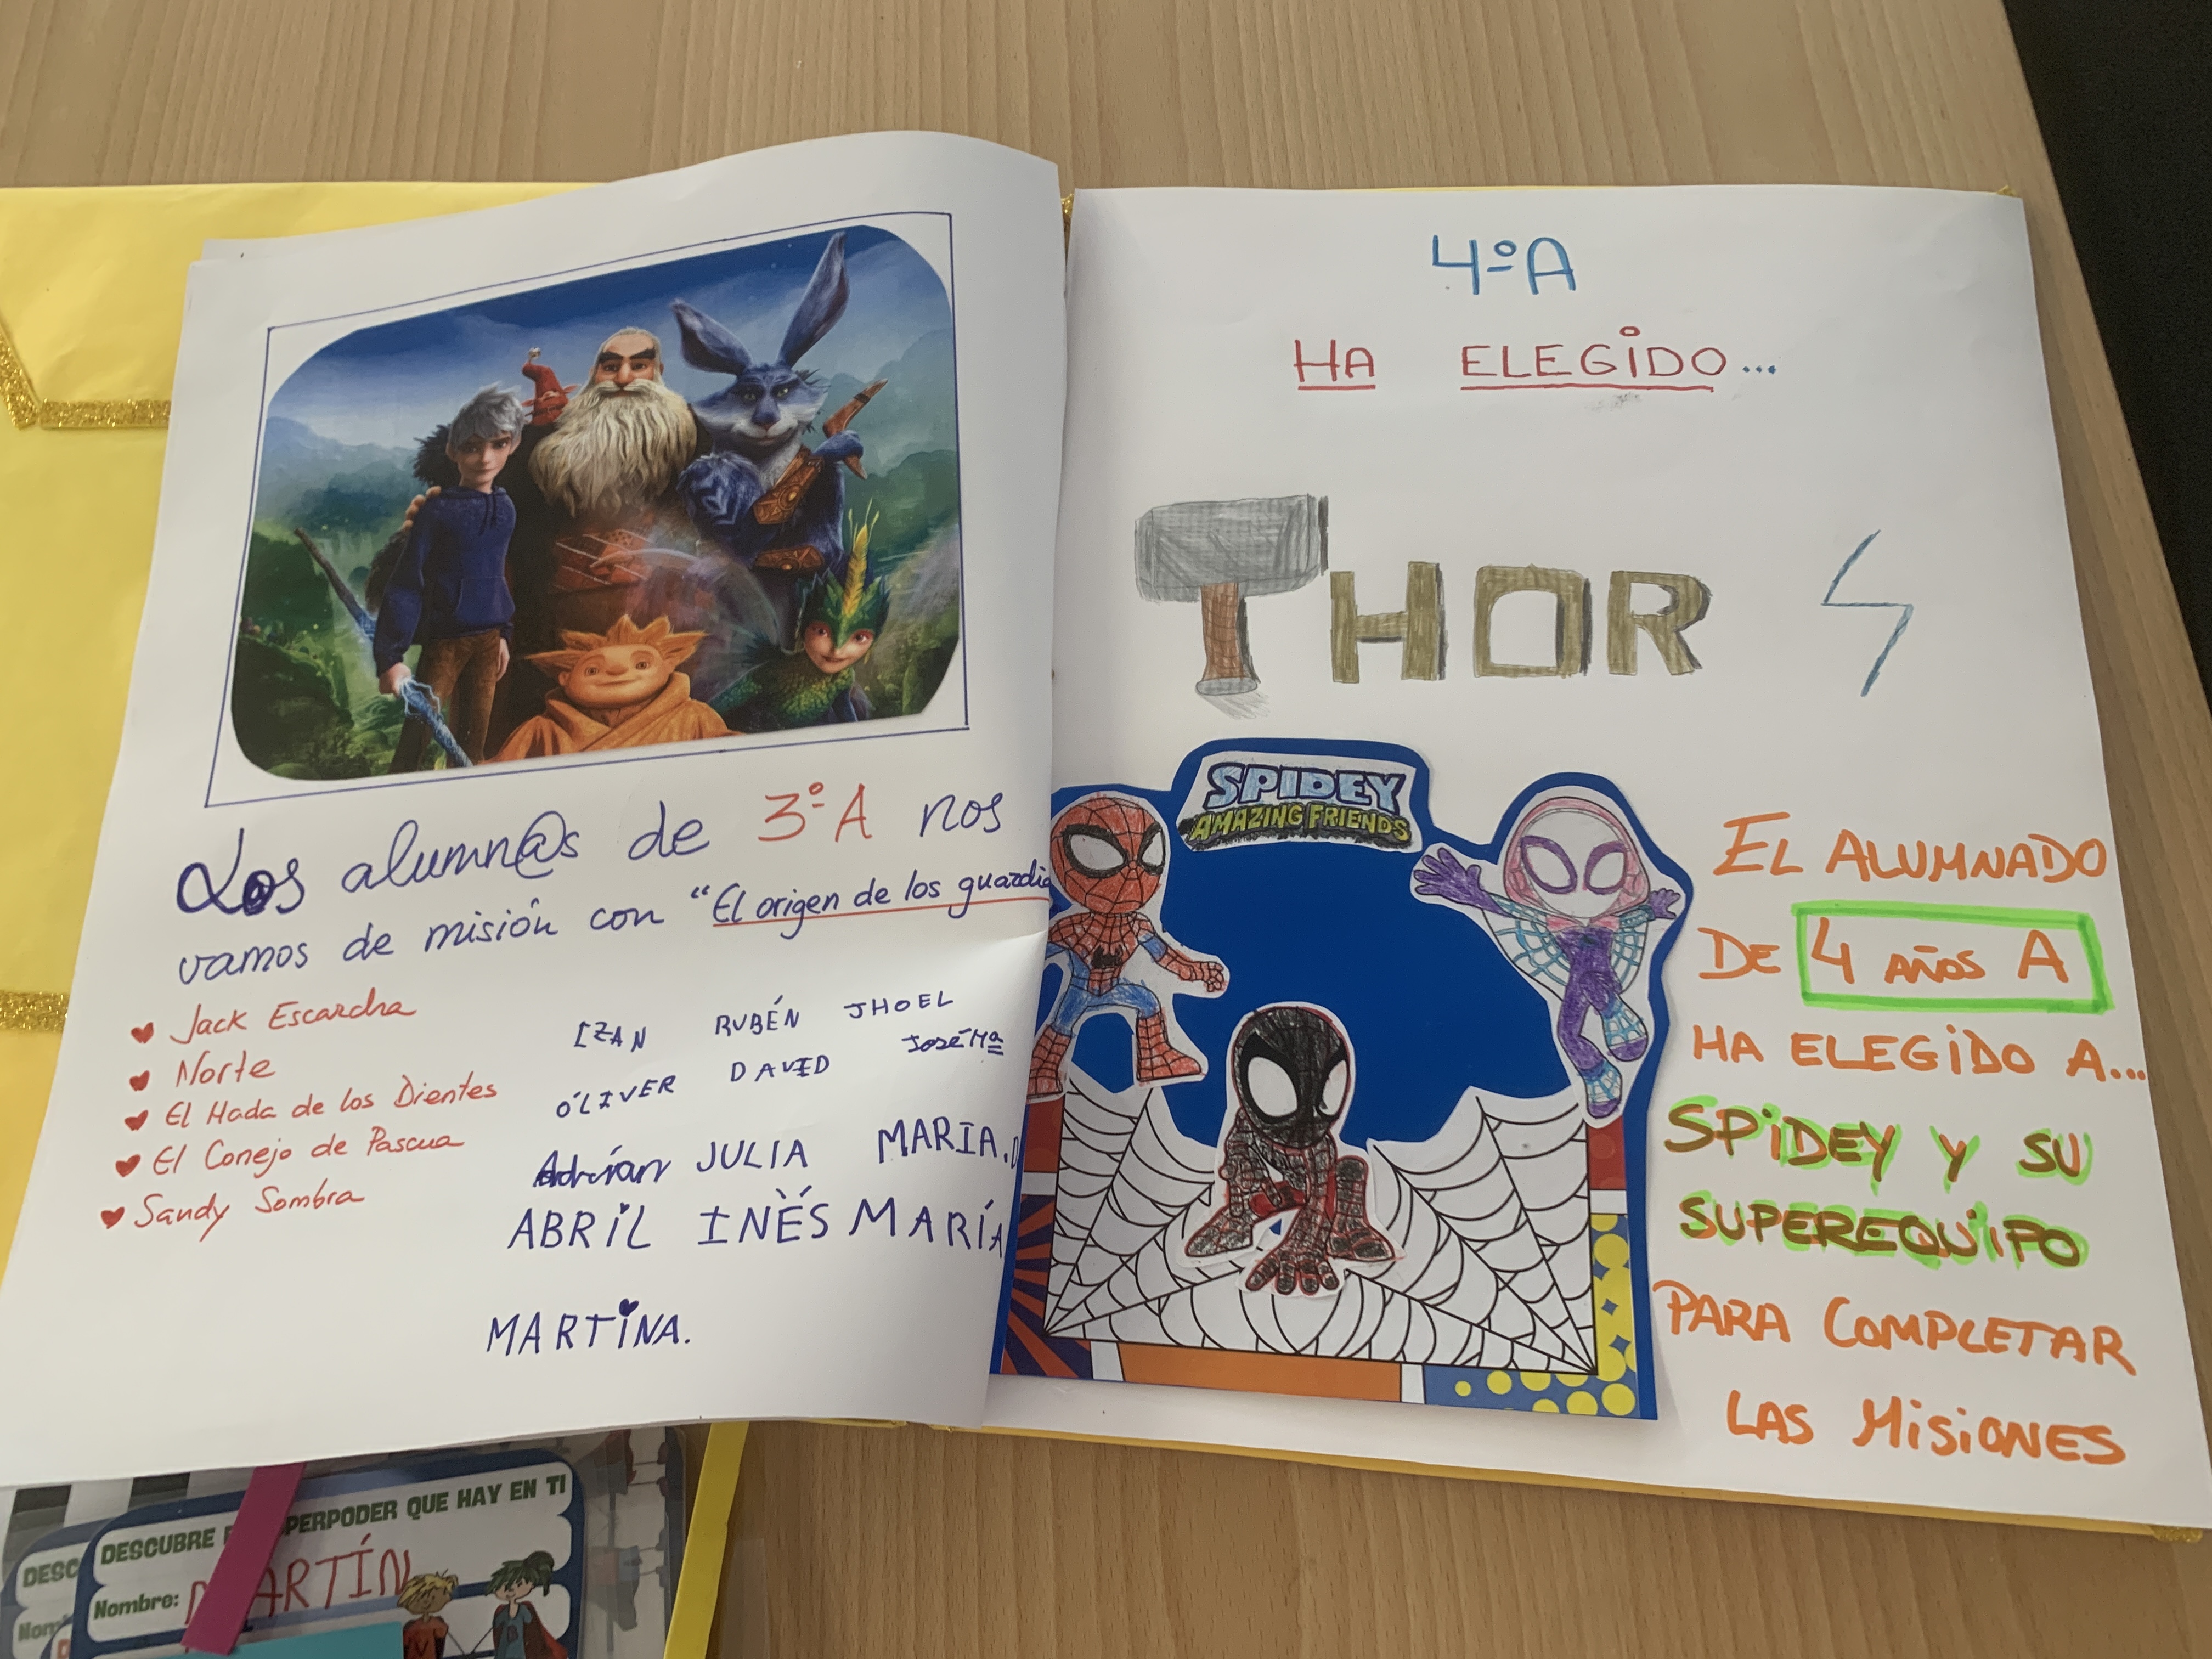 Los alumn@s de 3º A nos
vamos de misión con "El origen de los guardia
Jack Escarcha
Norte
El Hada de los Dientes
El Conejo de Pascua
Sandy Sombra
IZAN RUBÉN JHOEL
ÓLIVER DAVID José Mª
Adrían JULIA MARIA.D
ABRiL INÉS MARÍA
MARTiNA.
4ºA
HA ELEGiDO...
THOR
SPIDEY
AMAZING FRIENDS
EL ALUMNADO
DE 4 AÑOS A
HA ELEGiDO A...
SPiDEY Y SU
SUPEREQUiPO
PARA COMPLETAR
LAS MiSiONES
DESCUBRE PERPODER QUE HAY EN TI
Nombre: MARTÍN
DESC
Nom